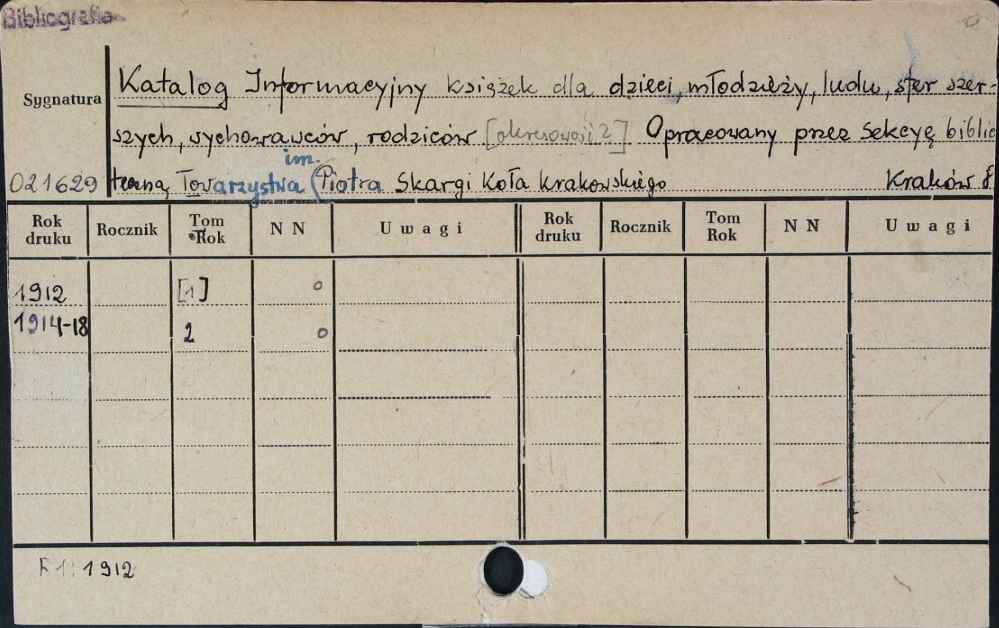 Bibliografia
Katalog Informacyjny książek dla dzieci, młodzieży, ludu, sfer szer-
Sygnatura
szych, wychowawców, rodziców [okresowość?] Opracowany przez Sekcyę biblio
im.
021629 teczną Towarzystwa (Piotra Skargi Koła Krakowskiego Kraków 8
Rok druku Rocznik Tom Rok N N Uwagi Rok druku Rocznik Tom Rok N N Uwagi
1912 [1] o
1914-18 2 o
R 1: 1912